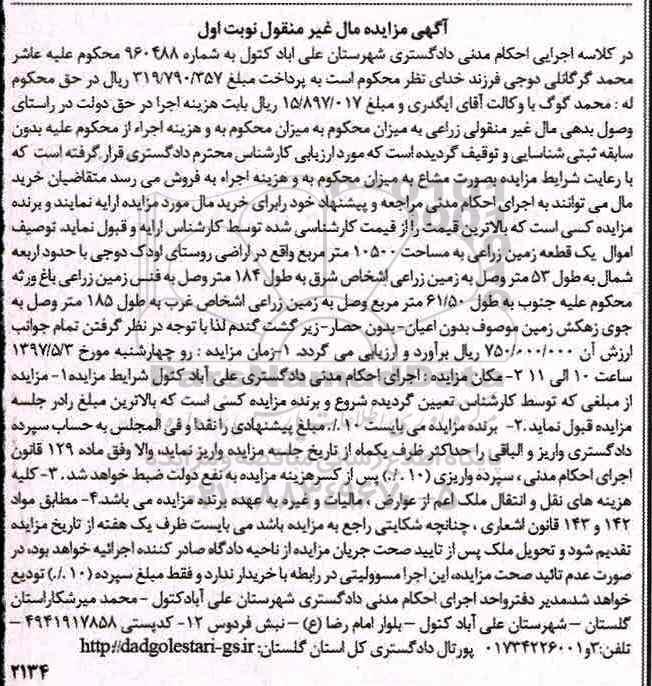 آگهی مزایده مال غیر منقول نوبت اول
در کلاسه اجرایی احکام مدنی دادگستری شهرستان علی اباد کتول به شماره ۹۶۰۴۸۸ محکوم علیه عاشر
محمد گرگانلی دوجی فرزند خدای نظر محکوم است به پرداخت مبلغ ۳۱۹/۷۹۰/۳۵۷ ریال در حق محکوم
له : محمد گوگ با وکالت آقای ایگدری و مبلغ ۱۵/۸۹۷/۰۱۷ ریال بابت هزینه اجرا در حق دولت در راستای
وصول بدهی مال غیر منقولی زراعی به میزان محکوم به میزان محکوم به و هزینه اجراء از محکوم علیه بدون
سابقه ثبتی شناسایی و توقیف گردیده است که مورد ارزیابی کارشناس محترم دادگستری قرار گرفته است که
با رعایت شرایط مزایده بصورت مشاع به میزان محکوم به و هزینه اجراء به فروش می رسد متقاضیان خرید
مال می توانند به اجرای احکام مدنی مراجعه و پیشنهاد خود رابرای خرید مال مورد مزایده ارایه نمایند و برنده
مزایده کسی است که بالاترین قیمت را از قیمت کارشناسی شده توسط کارشناس ارایه و قبول نماید. توصیف
اموال یک قطعه زمین زراعی به مساحت ۱۰۵۰۰ متر مربع واقع در اراضی روستای اودک دوجی با حدود اربعه
شمال به طول ۵۳ متر وصل به زمین زراعی اشخاص شرق به طول ۱۸۴ متر وصل به فنس زمین زراعی باغ ورثه
محکوم علیه جنوب به طول ۶۱/۵۰ متر مربع وصل به زمین زراعی اشخاص غرب به طول ۱۸۵ متر وصل به
جوی زهکش زمین موصوف بدون اعیان-بدون حصار-زیر گشت گندم لذا با توجه در نظر گرفتن تمام جوانب
ارزش آن ۷۵۰/۰۰۰/۰۰۰ ریال برآورد و ارزیابی می گردد. ۱-زمان مزایده : رو چهارشنبه مورخ ۱۳۹۷/۵/۳
ساعت ۱۰ الی ۱۱ ۲- مکان مزایده : اجرای احکام مدنی دادگستری علی آباد کتول شرایط مزایده۱- مزایده
از مبلغی که توسط کارشناس تعیین گردیده شروع و برنده مزایده کسی است که بالاترین مبلغ رادر جلسه
مزایده قبول نماید .۲- برنده مزایده می بایست ۱۰./. مبلغ پیشنهادی را نقدا و فی المجلس به حساب سپرده
دادگستری واریز و الباقی را حداکثر ظرف یکماه از تاریخ جلسه مزایده واریز نماید، والا وفق ماده ۱۲۹ قانون
اجرای احکام مدنی ، سپرده واریزی (۱۰./.) پس از کسرهزینه مزایده به نفع دولت ضبط خواهد شد. ۳- کلیه
هزینه های نقل و انتقال ملک اعم از عوارض ، مالیات و غیره به عهده برنده مزایده می باشد.۴- مطابق مواد
۱۴۲ و ۱۴۳ قانون اشعاری ، چنانچه شکایتی راجع به مزایده باشد می بایست ظرف یک هفته از تاریخ مزایده
تقدیم شود و تحویل ملک پس از تایید صحت جریان مزایده از ناحیه دادگاه صادر کننده اجرائیه خواهد بود، در
صورت عدم تائید صحت مزایده، این اجرا مسوولیتی در رابطه با خریدار ندارد و فقط مبلغ سپرده (۱۰./.) تودیع
خواهد شد.مدیر دفترواحد اجرای احکام مدنی دادگستری شهرستان علی آبادکتول - محمد میرشکاراستان
گلستان – شهرستان علی آباد کتول – بلوار امام رضا (ع) – نبش فردوس ۱۲- کدپستی ۴۹۴۱۹۱۷۸۵۸ –
تلفن:۳و۰۱۷۳۴۲۲۶۰۰۱ پورتال دادگستری کل استان گلستان: http://dadgolestari-gs.ir
۲۱۳۴